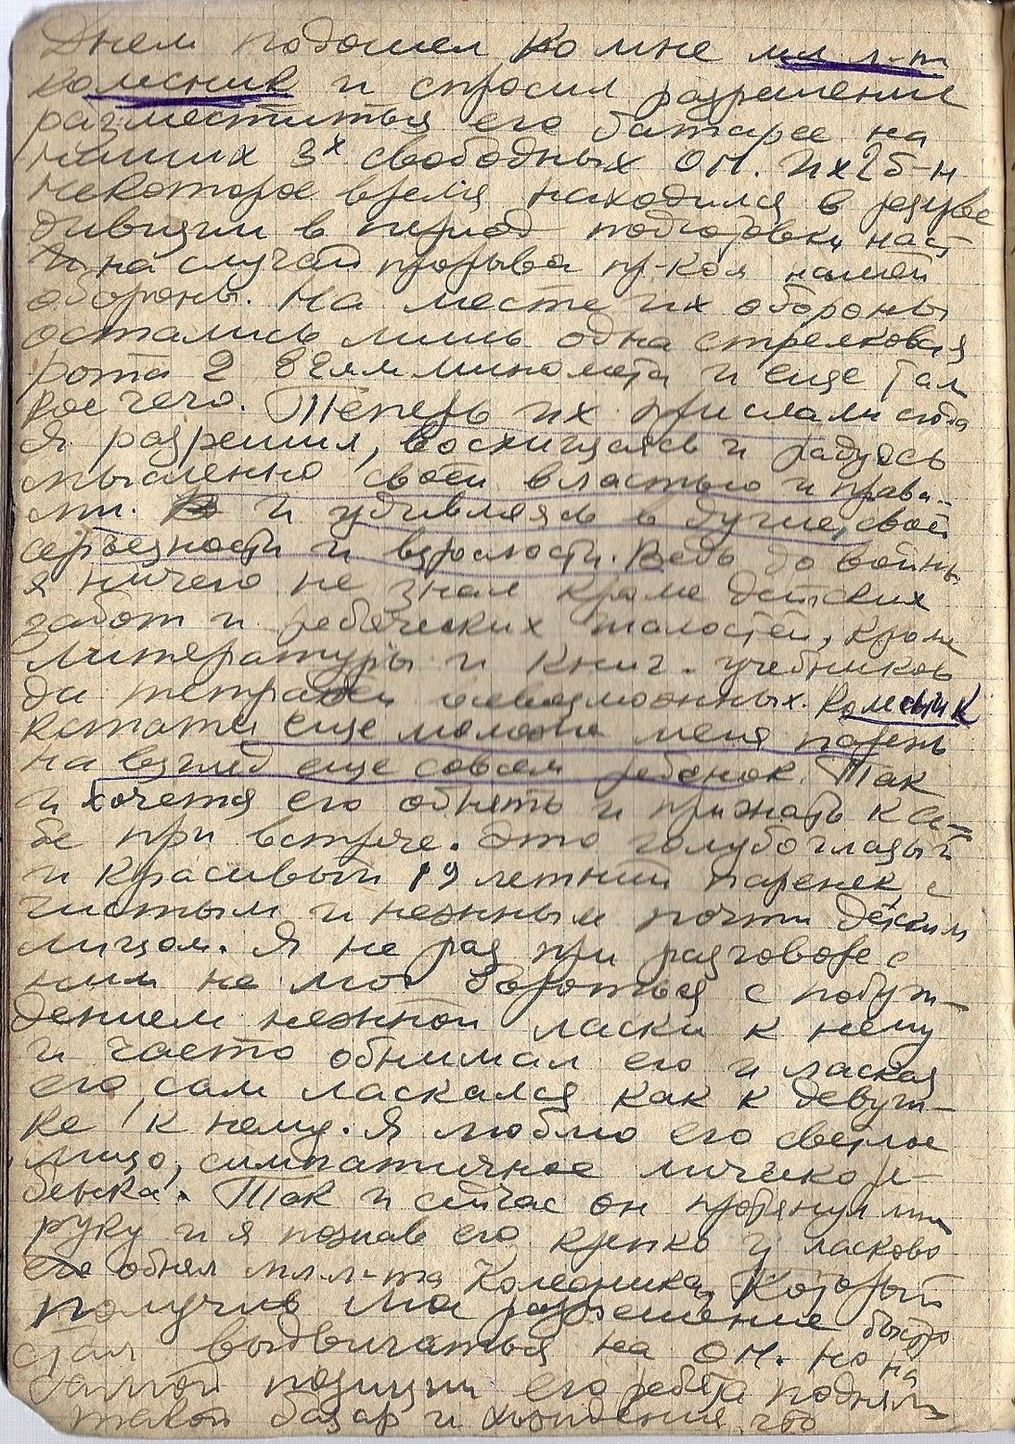 Днем подошел ко мне мл л-т
Колесник и спросил разрешение
разместиться его батарее на
наших 3х свободных ОП. Их 2б-н
некоторое время находился в резерве
дивизии в период подготовки наст
и на случай прорыва пр-ка нашей
обороны. На месте их обороны
остались лишь одна стрелковая
рота 2 82мм миномета и еще там
кое чего. Теперь их прислали сюда
Я разрешил, восхищаясь и радуясь
мысленно своей властью и права-
ми. и удивляясь в душе, своей
серьезности и взрослости. Ведь до войны
я ничего не знал кроме детских
забот и ребяческих шалостей, кроме
литературы и книг. учебников
да тетрадей всевозможных. Колесник
кстати еще моложе меня парень
на взгляд еще совсем ребенок. Так
и хочется его обнять и прижать к се-
бе при встрече. Это голубоглазый
и красивый 19 летний паренек с
чистым и нежным почти детским
лицом. Я не раз при разговоре с
ним не мог бороться с побуж-
дением нежной ласки к нему
и часто обнимал его и лаская
его, сам ласкался как к девуш-
ке к нему. Я люблю его светлое
лицо, симпатичное личико ре-
бенка. Так и сейчас он протянул мне
руку и я пожав его крепко и ласково
его обнял мл.л-та Колесника, Который
получив мое разрешение быстро
стал выдвигаться на ОП. но на
самой позиции его ребята подняли
такой базар и хождения, что